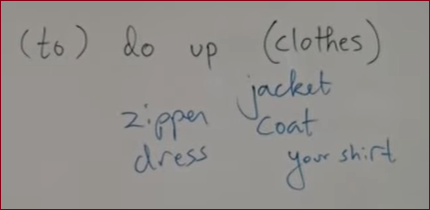 (to) do up (clothes)
jacket
zipper coat
dress your shirt